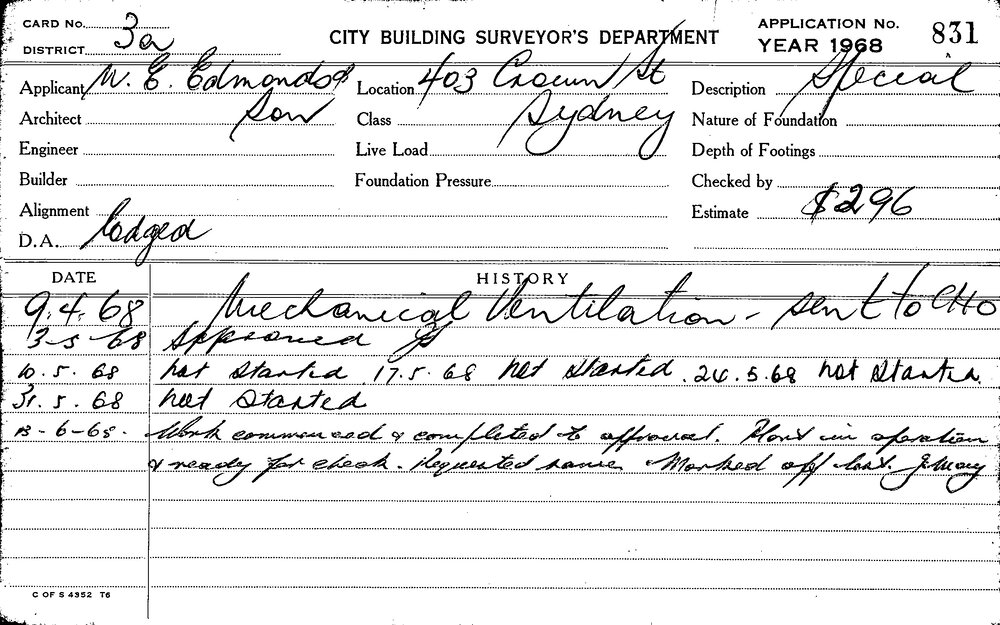 CARD No. APPLICATION No. 831
DISTRICT 3a CITY BUILDING SURVEYOR'S DEPARTMENT YEAR 1968
Applicant W. E. Edmonds & Location 403 Crown St Description Special
Architect Son Class Sydney Nature of Foundation
Engineer Live Load Depth of Footings
Builder Foundation Pressure Checked by
Alignment Estimate $296
D.A. lodged
DATE HISTORY
9.4.68 Mechanical Ventilation - sent to CHO
3-5-68 Approved
10.5.68 not started 17.5.68 not started 24.5.68 not started
31.5.68 not started
13-6-68. Work commenced & completed to approval. Plant in operation
& ready for check. Requested same. Marked off
C OF S 4352 T6